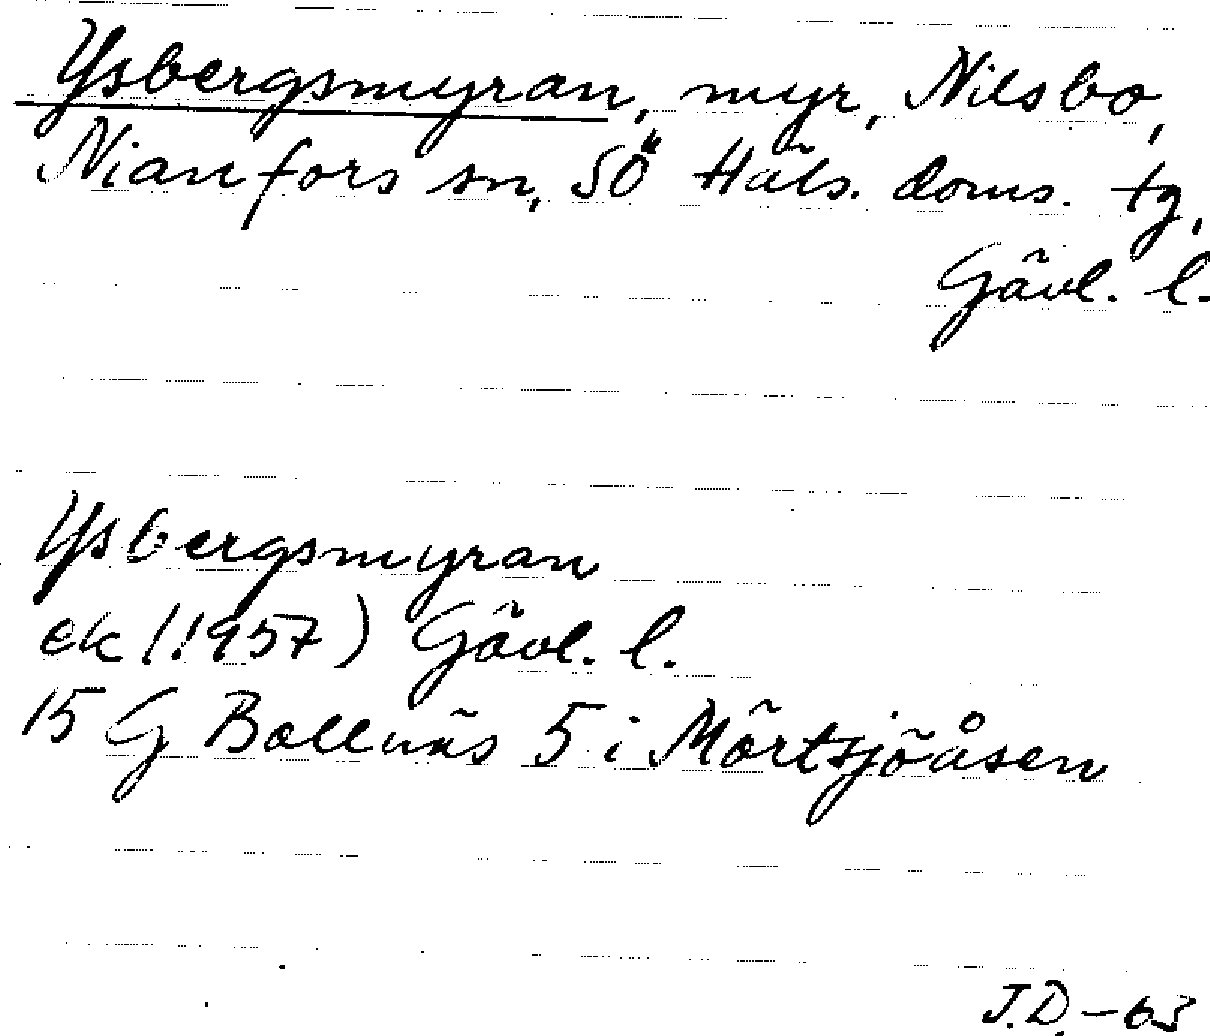 Ysbergsmyran, myr, Nilsbo,
Nianfors sn, SÖ Häls. doms. tg,
Gävl. l.
Ysbergsmyran
ek (1957) Gävl. l.
15 G Bollnäs 5 i Mörtsjöåsen
J.D. – 63